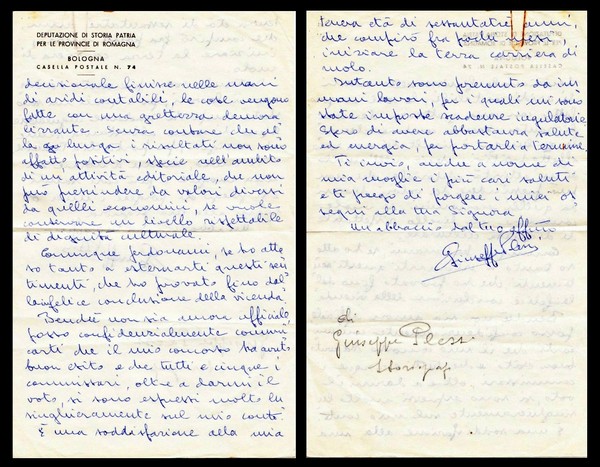 DEPUTAZIONE DI STORIA PATRIA
PER LE PROVINCIE DI ROMAGNA
BOLOGNA
CASELLA POSTALE N. 74
decisionale finisce nelle mani
di aridi contabili, le cose vengono
fatte con una grettezza demora
lizzante. Senza contare che al
la lunga i risultati non sono
affatto positivi, specie nell'ambito
di un'attività editoriale, che non
può prescindere da valori diversi
da quelli economici, se vuole
conservare un livello rispettabile
di dignità culturale.
Comunque perdonami, se ho atte
so tanto a esternarti questi sen
timenti, che ho provato fino dal
la infelice conclusione della vicenda.
Benché non sia ancora ufficiale,
posso confidenzialmente comuni
carti che il mio concorso ha avuto
buon esito e che tutti e cinque i
commissari, oltre a darmi il
voto, si sono espressi molto lu
singhieramente sul mio conto.
È una soddisfazione alla mia
tenera età di sessantatré anni,
che compirò fra pochi mesi,
iniziare la terza carriera di
ruolo.
Intanto sono premuto da im
mani lavori, per i quali mi sono
state imposte scadenze
Spero di avere abbastanza salute
ed energia, per portarli a termine.
Ti invio, anche a nome di
mia moglie i più cari saluti
e ti prego di porgere i miei os
segni alla tua Signora.
Un abbraccio dal tuo aff.mo
Giuseppe Plessi
di
Giuseppe Plessi